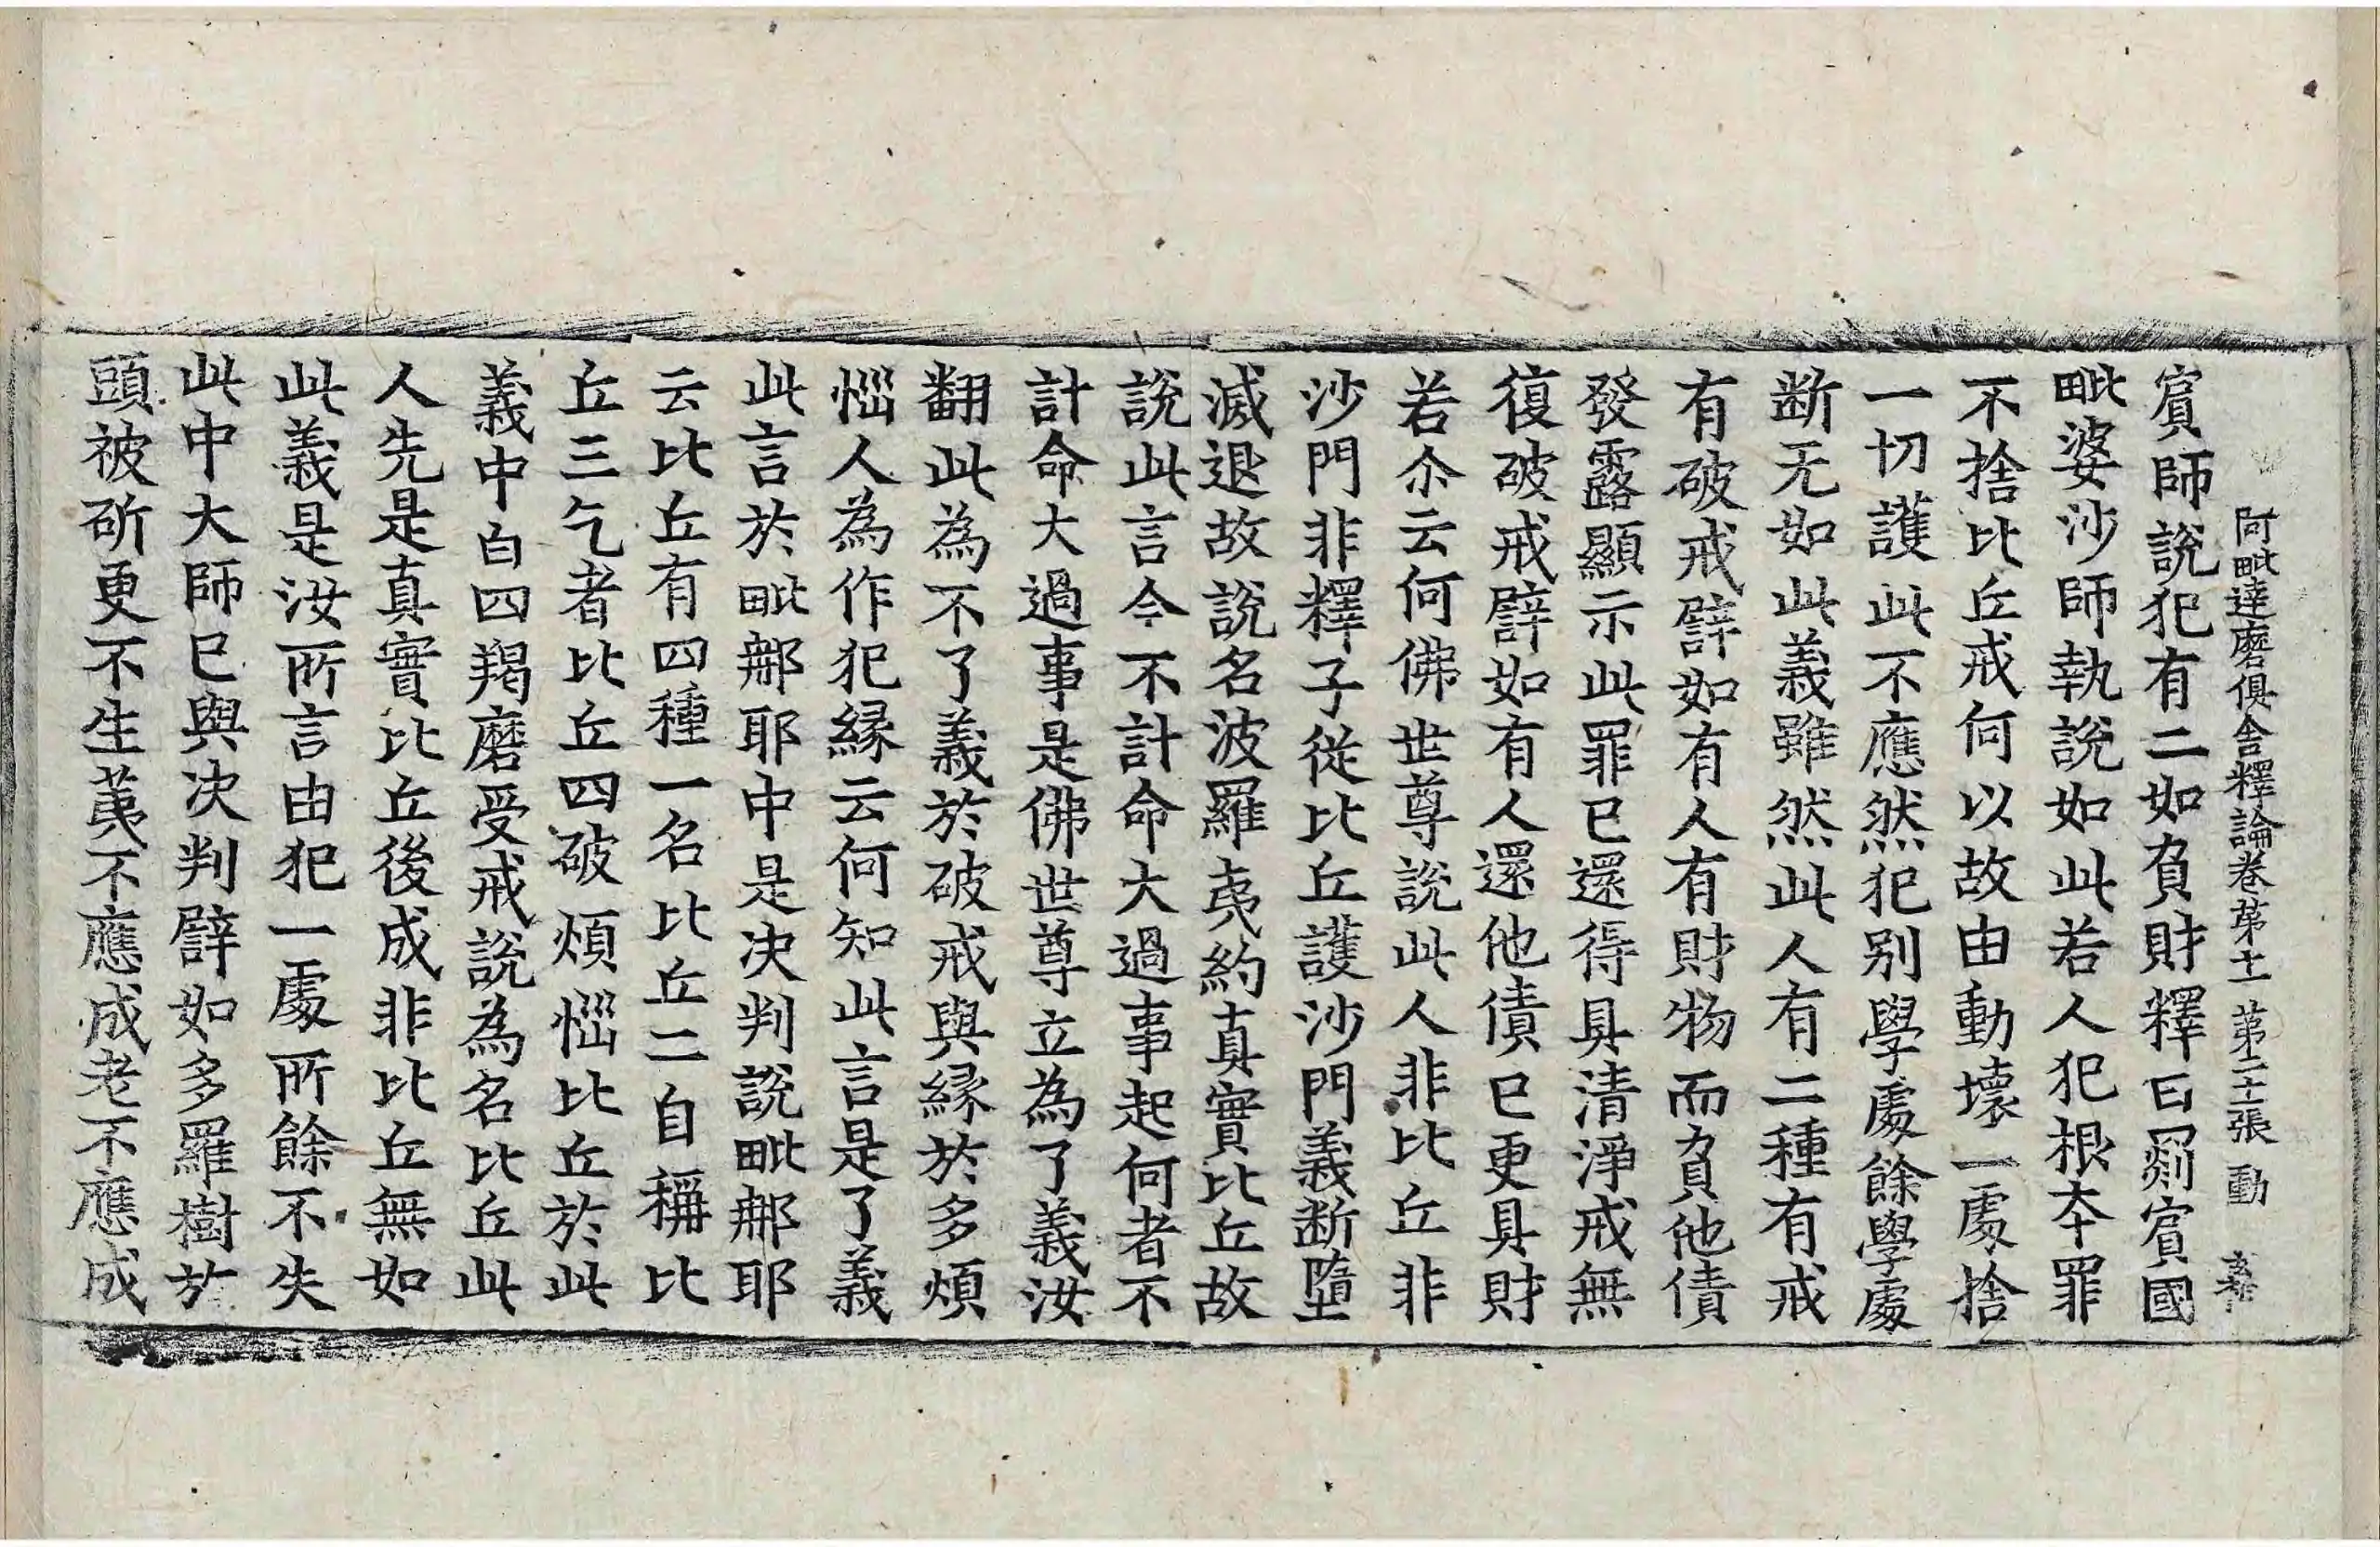 阿毗達磨俱舍釋論卷第十一 第二十張 動
賔師說犯有二如負財釋曰罽賔國
毗婆沙師執說如此若人犯根夲罪
不捨比丘戒何以故由動壞一處捨
一切護此不應然犯别學處餘學處
断无如此義雖然此人有二種有戒
有破戒譬如有人有財物而負他債
發露顯示此罪已還得具清淨戒無
復破戒譬如有人還他債已更具財
若尒云何佛世尊說此人非比丘非
沙門非釋子從比丘護沙門義断墮
滅退故說名波羅夷約真實比丘故
說此言今不計命大過事起何者不
計命大過事是佛世尊立為了義汝
翻此為不了義於破戒與緣於多煩
惱人為作犯緣云何知此言是了義
此言於毗那耶中是决判說毗那耶
云比丘有四種一名比丘二自稱比
丘三乞者比丘四破煩惱比丘於此
義中白四羯磨受戒說為名比丘此
人先是真實比丘後成非比丘無如
此義是汝所言由犯一處所餘不失
此中大師已與决判譬如多羅樹於
頭被斫更不生荑不應成老不應成